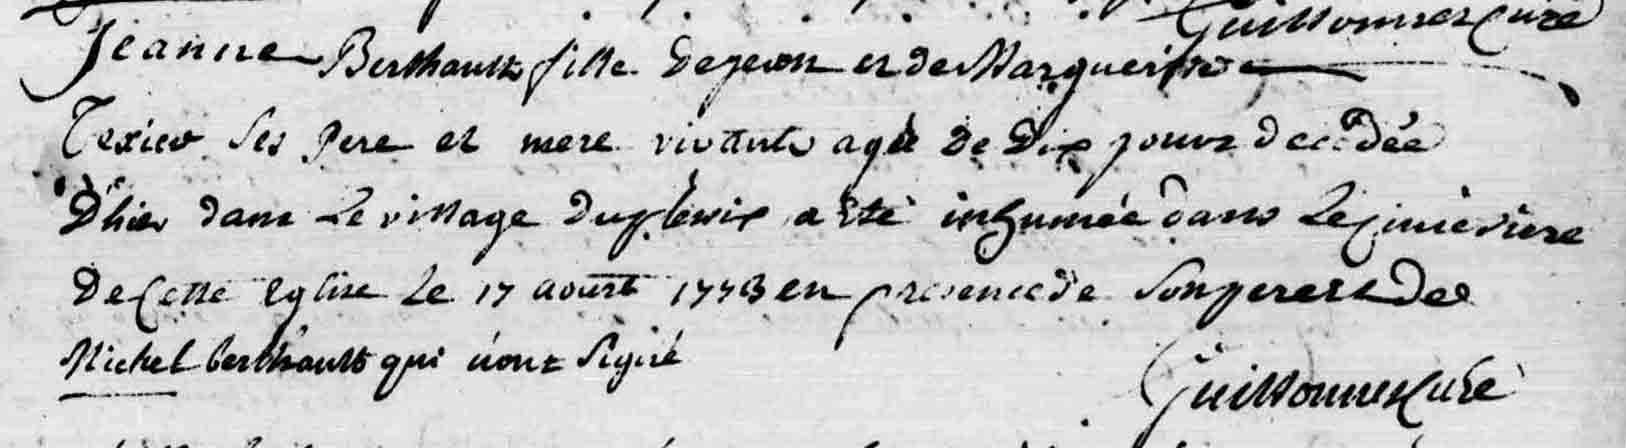 Guillonner Curé
Jeanne Berthault fille de jean et de Marguerite
Texier ses pere et mere vivants agée de Dix jours decedée
D'hier dans Le village duplessix a Eté inhumée dans Le cimetiere
De cette Eglise Le 17 aoust 1773 en presence de son pere et de
Michel berthault qui n'ont signé
Guillonner Curé